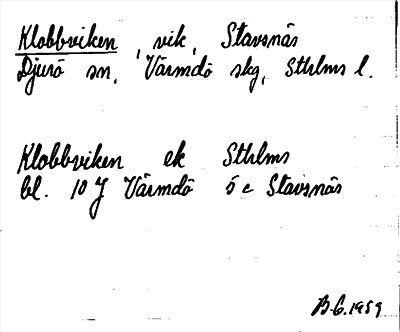 Klobbviken, vik, Stavsnäs
Djurö sn, Värmdö skg, Sthlms l.
Klobbviken ek Sthlms
bl. 10 J Värmdö ö c Stavsnäs
B.G. 1959